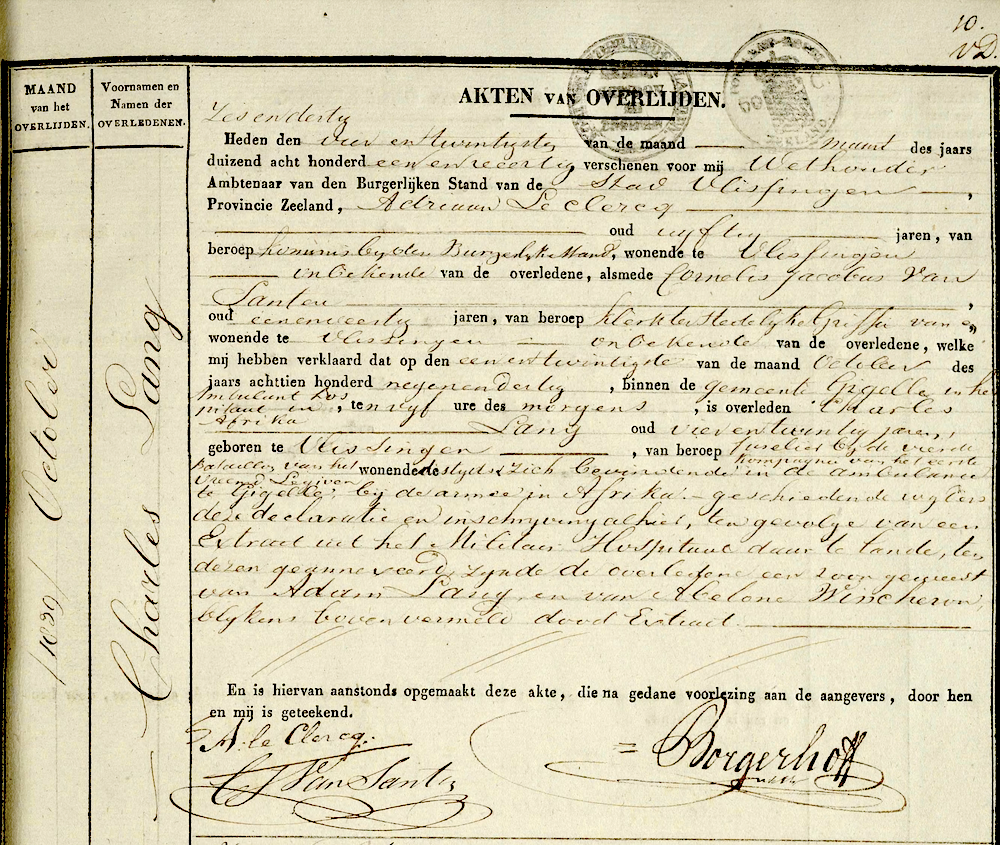 10.
VD.
MAAND
van het
OVERLIJDEN.
Voornamen en
Namen der
OVERLEDENEN.
October
/1839/
Charles Lang
AKTEN VAN OVERLIJDEN.
Zesendertig
Heden den vier en twintigsten van de maand maart des jaars
duizend acht honderd eenenveertig verschenen voor mij Wethouder
Ambtenaar van den Burgerlijken Stand van de Stad Vlissingen,
Provincie Zeeland, Adriaan Le Clercq
oud vyftig jaren, van
beroep kommis by den Burgerlyke Stand, wonende te Vlissingen
onbekende van de overledene, alsmede Cornelis Jacobus Van
Santen,
oud eenenveertig jaren, van beroep klerk ter stedelyke Griffie van en
wonende te Vlissingen onbekende van de overledene, welke
mij hebben verklaard dat op den eenentwintigste van de maand October des
jaars achttien honderd negenendertig, binnen de gemeente Gigelle in het
Ambulant hos
pitaal in
Afrika, ten vyf ure des morgens, is overleden Charles
Lang oud vierentwintig jaren,
geboren te Vlissingen, van beroep fuselier by de vierde
kompagnie van het eerste
bataillon van het
Vreemd. Legioen
wonende destyds zich bevindende in de ambulance
te Gigelle, by de armee in Afrika. geschiedende
deze declaratie en inschryving alhier, ten gevolge van een
Extract uit het Militair Hospitaal daar te lande, ten
dezen geannexeerd, zynde de overledene een zoon geweest
van Adam Lang, en van Abelone Wincheron,
blykens bovenvermeld dood Extract.
En is hiervan aanstonds opgemaakt deze akte, die na gedane voorlezing aan de aangevers, door hen
en mij is geteekend.
A. le Clercq.
CJ Van Santen
= Borgerhoff